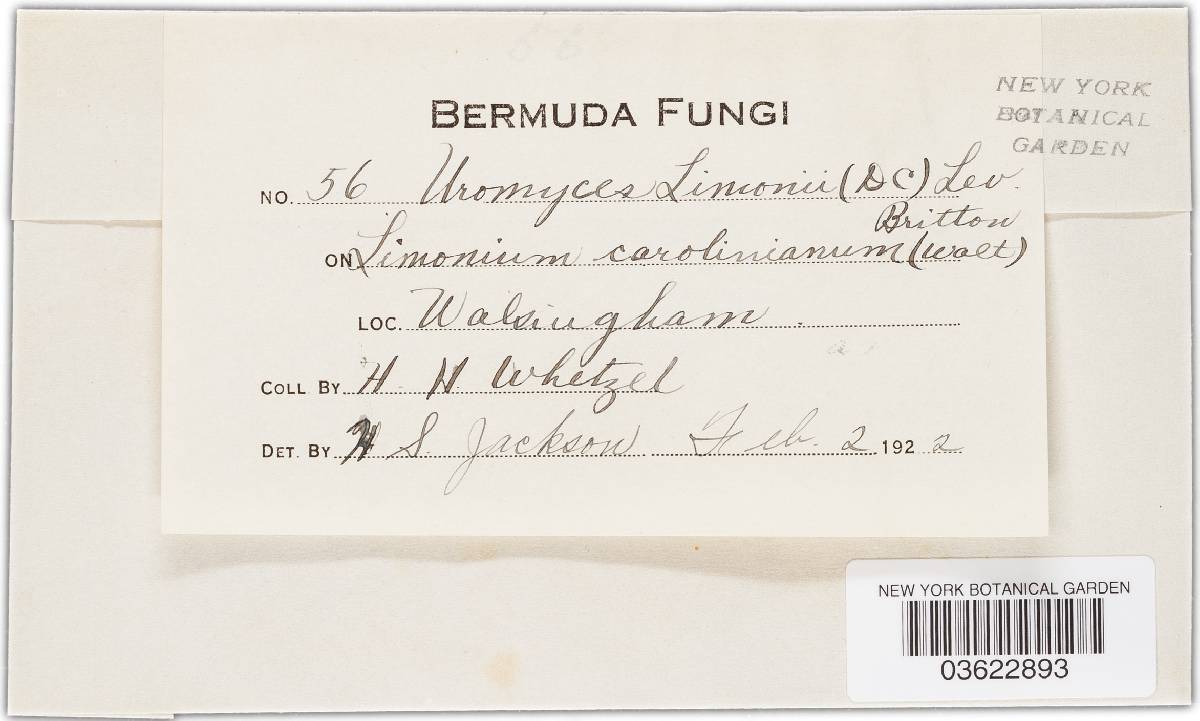 BERMUDA FUNGI
NEW YORK
BOTANICAL
GARDEN
NO. 56 Uromyces Limonii (DC) Lev.
Britton
ON Limonium carolinianum (Walt)
LOC. Walsingham.
COLL BY H. H Whetzel
DET. BY H S. Jackson Feb. 2 1922
NEW YORK BOTANICAL GARDEN
03622893